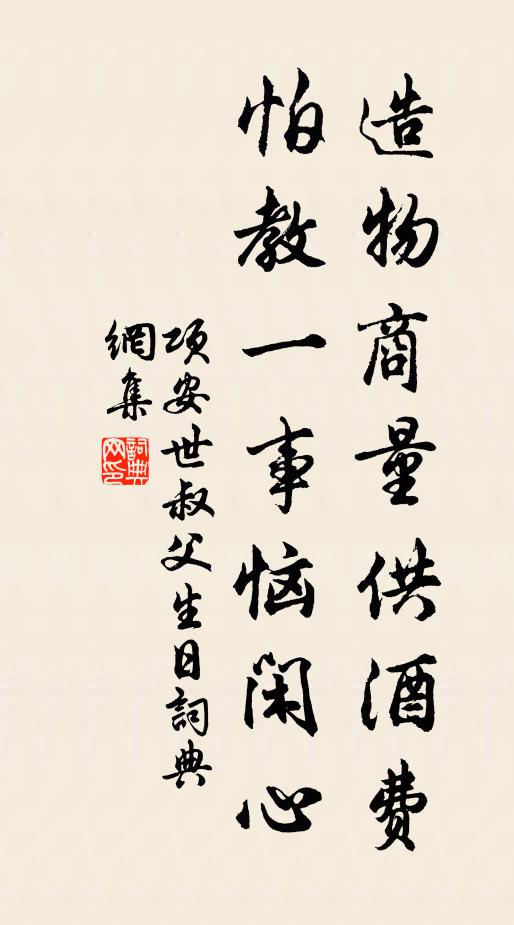 造物商量供酒费
怕教一事恼闲心
项安世叔父生日詞典
網集
詞典
网印